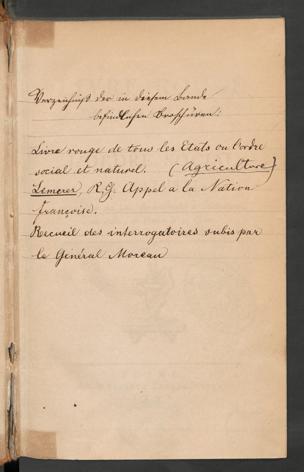 Verzeichniß der in diesem Bande
befindlichen Broschüren:
Livre rouge de tous les Etats ou l'ordre
social et naturel. (Agriculture)
Lemerer, R.G. Appel a la Nation
françoise.
Recueil des interrogatoires subis par
le Général Moreau